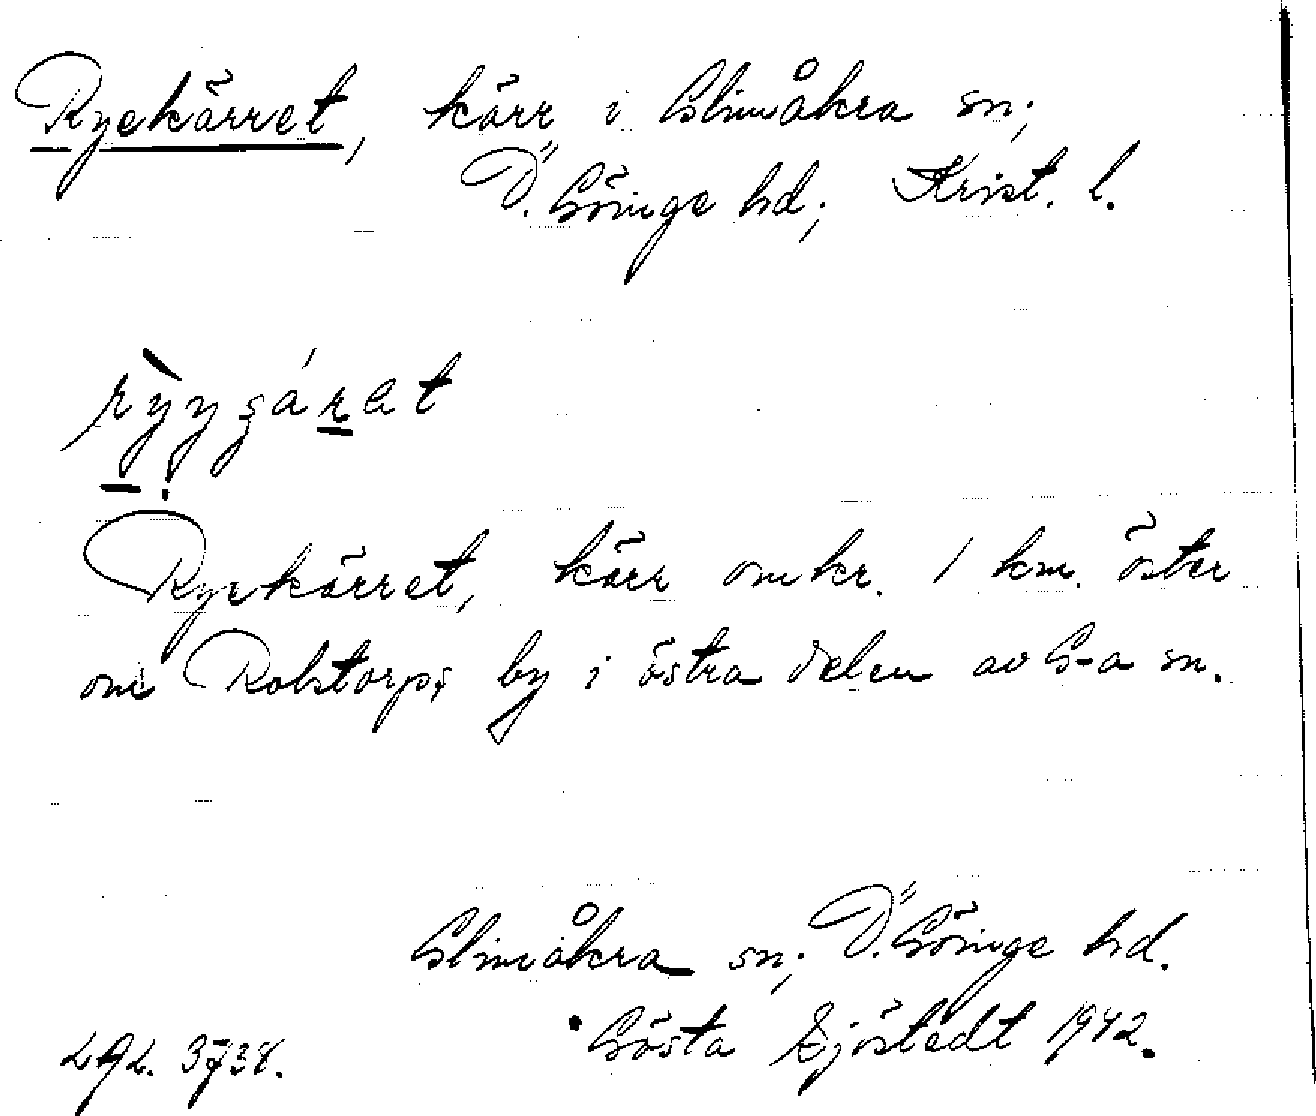 Ryekärret, kärr i Glimåkra sn;
Ö. Göinge hd; Krist. l.
Ryekärret, kärr omkr. 1 km. öster
om Rolstorps by i östra delen av G-a sn.
Glimåkra sn; Ö. Göinge hd.
Gösta Sjöstedt 1942.
LAL. 3738.